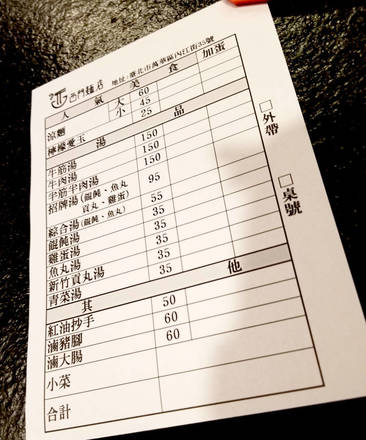 西門麵店 地址:臺北市萬華區內江街35號
人氣美食 加蛋
涼麵 大 60
小 45
檸檬愛玉 25
湯品
牛筋湯 150
牛肉湯 150
半筋半肉湯 150
招牌湯(餛飩、魚丸 95
貢丸、雞蛋)
綜合湯(餛飩、魚丸) 55
餛飩湯 35
雞蛋湯 35
魚丸湯 35
新竹貢丸湯 35
青菜湯 35
其他
紅油抄手 50
滷豬腳 60
滷大腸 60
小菜
合計
□外帶
□桌號